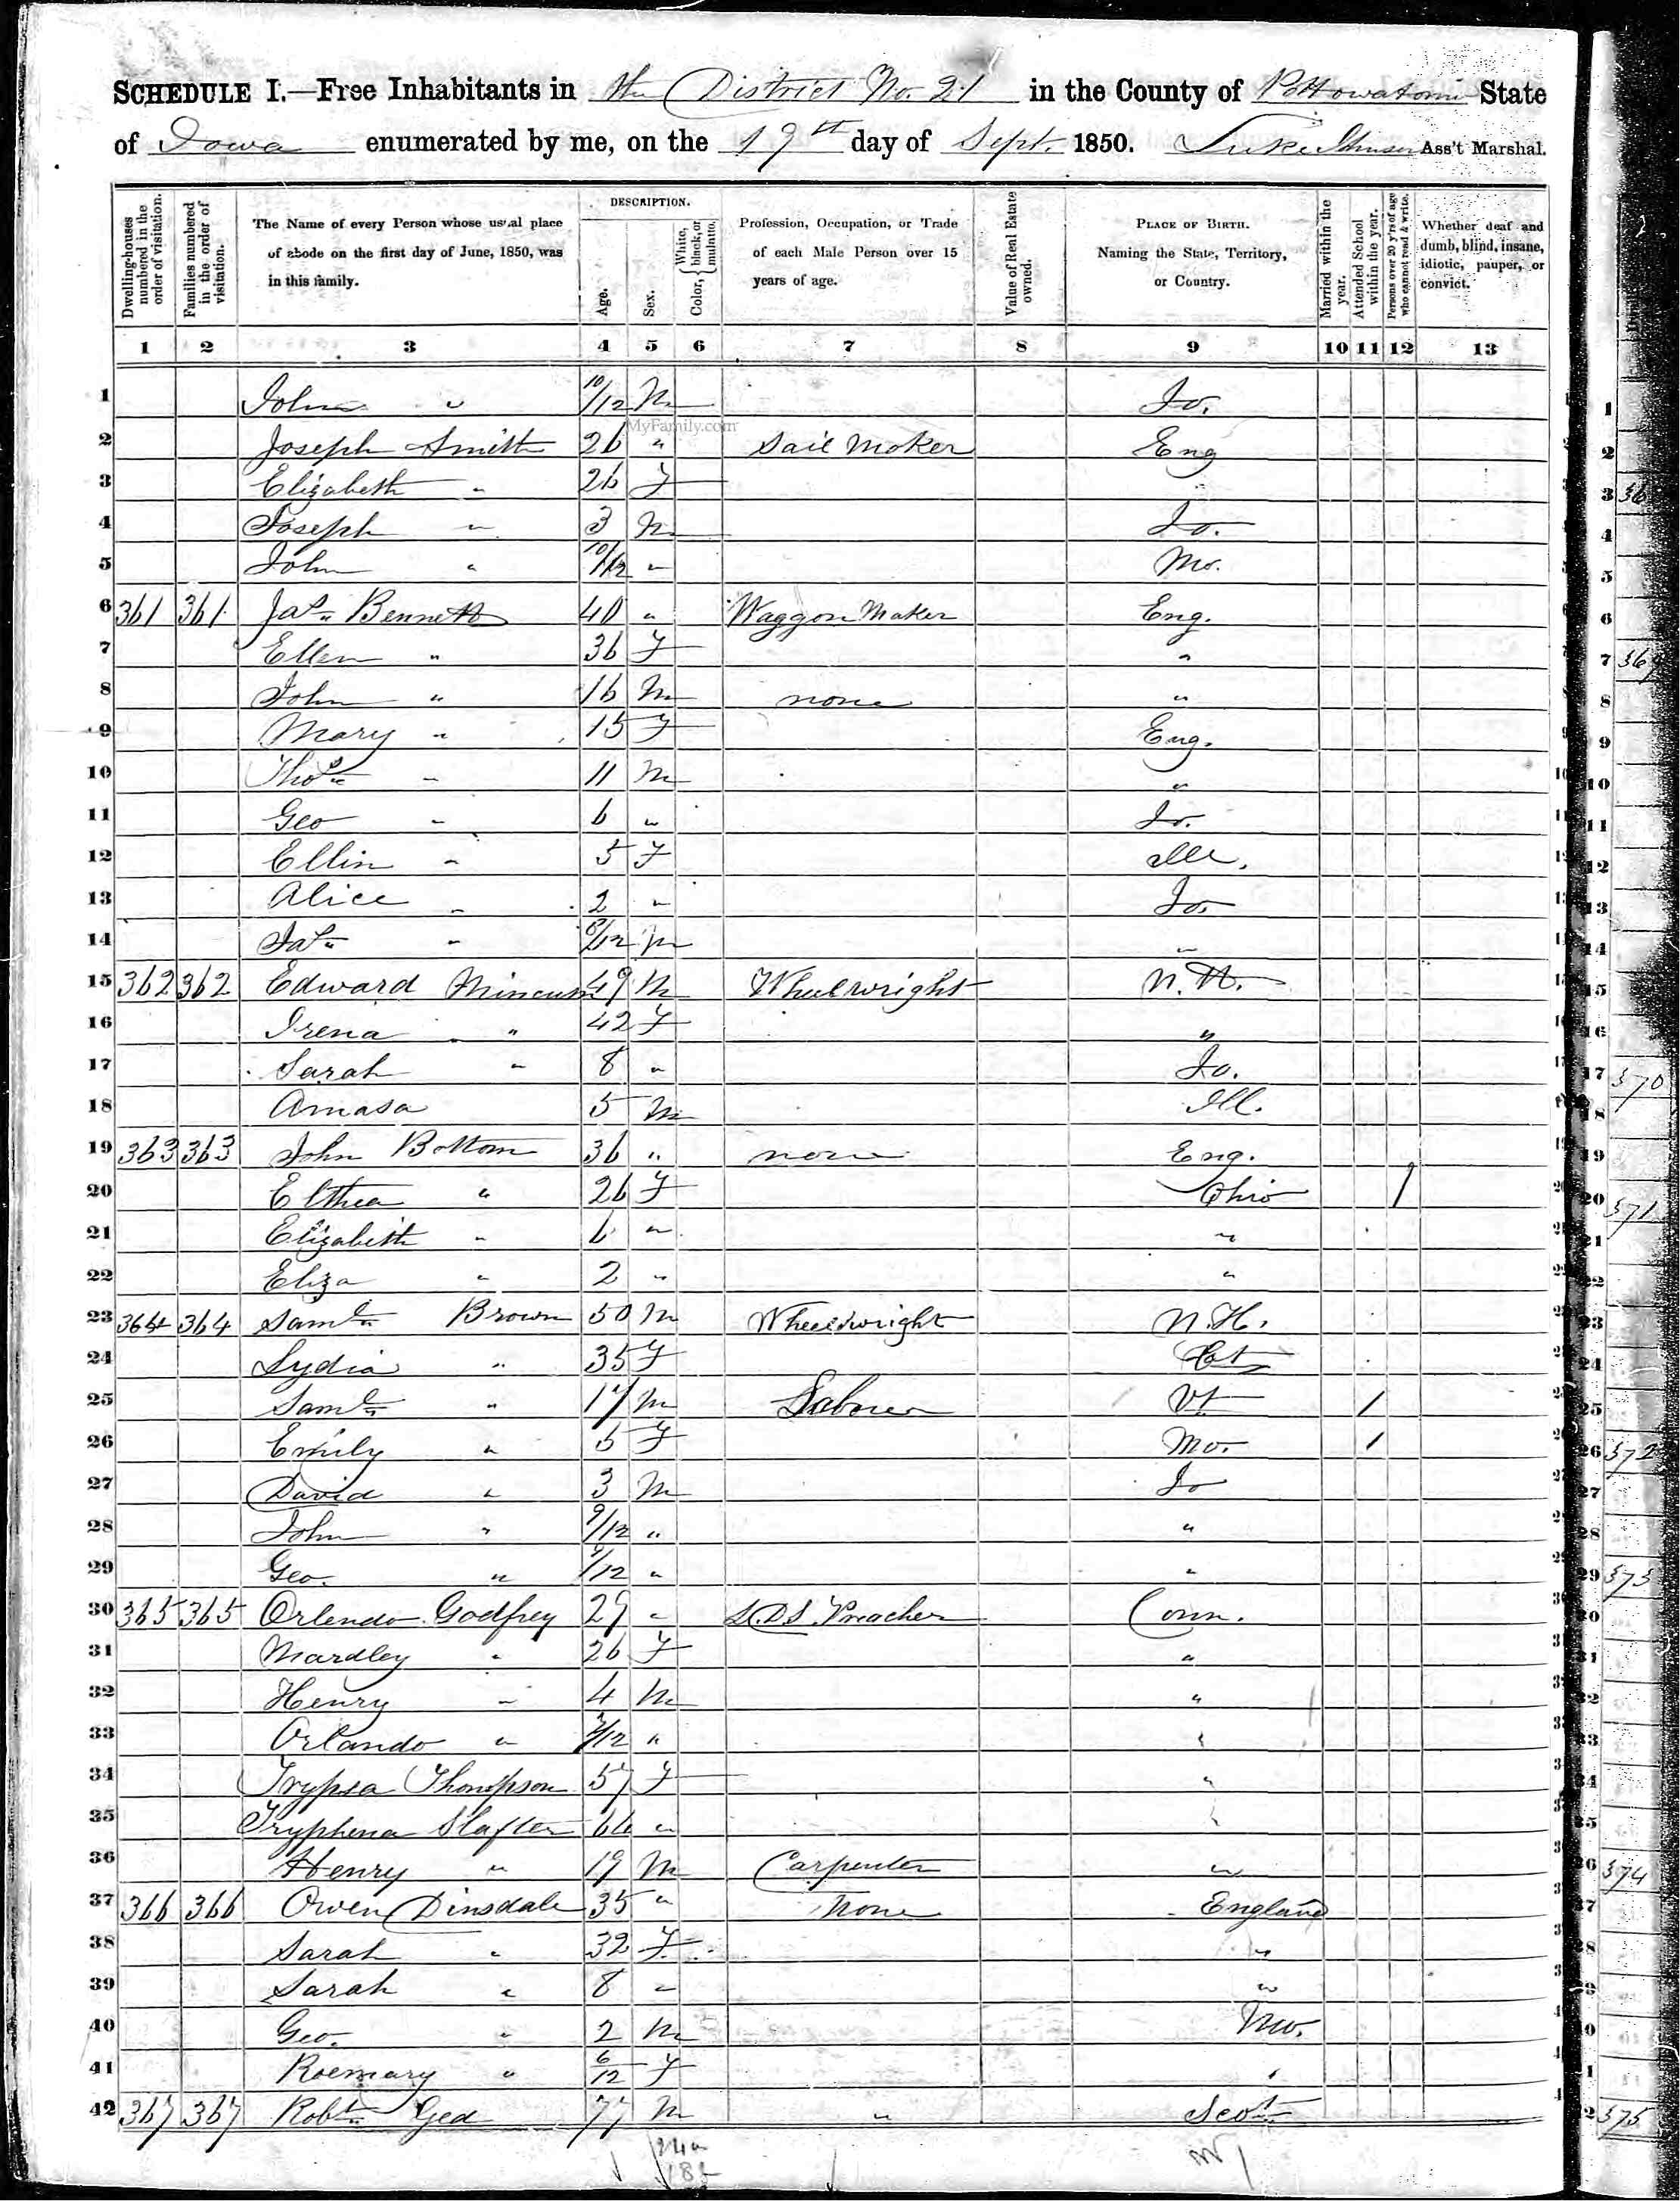 SCHEDULE I.—Free Inhabitants in the District No. 21 in the County of Pottowatomi State
of Iowa enumerated by me, on the 19th day of Sept 1850. Luke Johnson Ass't Marshal.
Dwelling-houses numbered in the order of visitation.
Families numbered in the order of visitation.
The Name of every Person whose usual place of abode on the first day of June, 1850, was in this family.
DESCRIPTION.
Age.
Sex.
Color, { White, black, or mulatto.
Profession, Occupation, or Trade of each Male Person over 15 years of age.
Value of Real Estate owned.
PLACE OF BIRTH. Naming the State, Territory, or Country.
Married within the year.
Attended School within the year.
Persons over 20 y'rs of age who cannot read & write.
Whether deaf and dumb, blind, insane, idiotic, pauper, or convict.
1 2 3 4 5 6 7 8 9 10 11 12 13
1 John " 10/12 M Io.
MyFamily.com
2 Joseph Smith 26 " Sail Maker Eng
3 Elizabeth " 26 F "
4 Joseph " 3 M Io.
5 John " 10/12 " Mo.
6 361 361 Jas. Bennett 40 " Waggon Maker Eng.
7 Ellen " 36 F "
8 John " 16 M none "
9 Mary " 15 F Eng.
10 Thos " 11 M "
11 Geo " 6 " Io.
12 Ellin " 5 F Ill.
13 Alice " 2 " Io.
14 Jas " 8/12 M "
15 362 362 Edward 49 M Wheelwright N.H.
16 Irena " 42 F "
17 Sarah " 8 " Io.
18 Amasa 5 M Ill.
19 363 363 John Bottom 36 " none Eng.
20 Elthea " 26 F Ohio /
21 Elizabeth " 6 " "
22 Eliza " 2 " "
23 364 364 Saml Brown 50 M Wheelwright N.H.
24 Lydia " 35 F Ct
25 Saml " 17 M Laborer Vt /
26 Emily " 5 F Mo. /
27 David " 3 M Io
28 John " 9/12 " "
29 Geo. " 9/12 " "
30 365 365 Orlendo Godfrey 29 " L.D.S. Preacher Conn.
31 Mardley " 26 F "
32 Henry " 4 M "
33 Orlando " /12 " "
34 Trypsa Thompson 57 F "
35 Tryphena Slafter 66 " "
36 Henry " 19 M Carpenter "
37 366 366 Owen Dinsdale 35 " None England
38 Sarah " 32 F "
39 Sarah " 8 " "
40 Geo. " 2 M Mo.
41 Roemary " 6/12 F "
42 367 367 Robt Ged 77 M " Scot